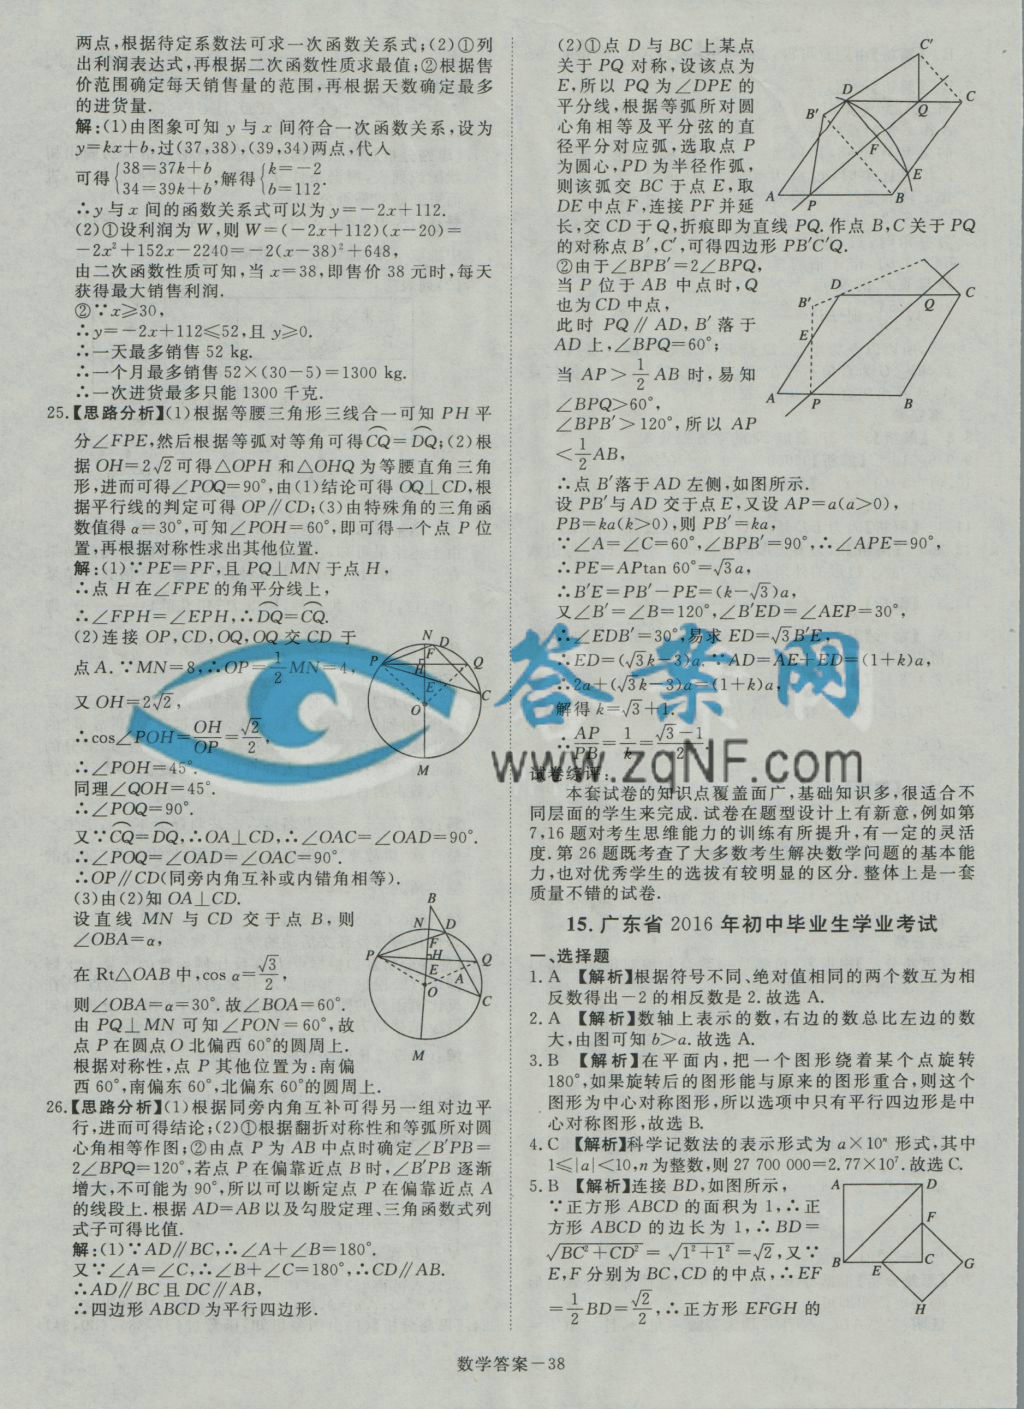 两点,根据待定系数法可求一次函数关系式;(2)①列
出利润表达式,再根据二次函数性质求最值;②根据售
价范围确定每天销售量的范围,再根据天数确定最多
的进货量.
解:(1)由图象可知 y 与 x 间符合一次函数关系,设为
y=kx+b,过(37,38),(39,34)两点,代入
可得{38=37k+b 34=39k+b,解得{k=-2 b=112.
∴y 与 x 间的函数关系式可以为 y=-2x+112.
(2)①设利润为 W,则 W=(-2x+112)(x-20)=
-2x²+152x-2240=-2(x-38)²+648,
由二次函数性质可知,当 x=38,即售价 38 元时,每天
获得最大销售利润.
②∵x≥30,
∴y=-2x+112≤52,且 y≥0.
∴一天最多销售 52 kg.
∴一个月最多销售 52×(30-5)=1300 kg.
∴一次进货最多只能 1300 千克.
25.【思路分析】(1)根据等腰三角形三线合一可知 PH 平
分∠FPE,然后根据等弧对等角可得CQ=DQ;(2)根
据 OH=2√2可得△OPH 和△OHQ 为等腰直角三角
形,进而可得∠POQ=90°,由(1)结论可得 OQ⊥CD,根
据平行线的判定可得 OP∥CD;(3)由特殊角的三角函
数值得 α=30°,可知∠POH=60°,即可得一个点 P 位
置,再根据对称性求出其他位置.
解:(1)∵PE=PF,且 PQ⊥MN 于点 H,
∴点 H 在∠FPE 的角平分线上,
∴∠FPH=∠EPH,∴DQ=CQ.
(2)连接 OP,CD,OQ,OQ 交 CD 于
点 A.∵MN=8,∴OP=1/2 MN=4,
又 OH=2√2,
∴cos∠POH=OH/OP=√2/2,
∴∠POH=45°.
同理∠QOH=45°.
∴∠POQ=90°.
又∵CQ=DQ,∴OA⊥CD,∴∠OAC=∠OAD=90°.
∴∠POQ=∠OAD=∠OAC=90°.
∴OP∥CD(同旁内角互补或内错角相等).
(3)由(2)知 OA⊥CD.
设直线 MN 与 CD 交于点 B,则
∠OBA=α,
在 Rt△OAB 中,cos α=√3/2,
则∠OBA=α=30°.故∠BOA=60°.
由 PQ⊥MN 可知∠PON=60°,故
点 P 在圆点 O 北偏西 60°的圆周上.
根据对称性,点 P 其他位置为:南偏
西 60°,南偏东 60°,北偏东 60°的圆周上.
26.【思路分析】(1)根据同旁内角互补可得另一组对边平
行,进而可得结论;(2)①根据翻折对称性和等弧所对圆
心角相等作图;②由点 P 为 AB 中点时确定∠B′PB=
2∠BPQ=120°,若点 P 在偏靠近点 B 时,∠B′PB 逐渐
增大,不可能为 90°,所以可以断定点 P 在偏靠近点 A
的线段上.根据 AD=AB以及勾股定理、三角函数式列
式子可得比值.
解:(1)∵AD∥BC,∴∠A+∠B=180°.
又∵∠A=∠C,∴∠B+∠C=180°,∴CD∥AB.
∴AD∥BC且 DC∥AB,
∴四边形 ABCD 为平行四边形.
N D F P H Q E A C O M
B N D F P H Q E A O C M
(2)①点 D 与 BC 上某点
关于 PQ 对称,设该点为
E,所以 PQ 为∠DPE 的
平分线,根据等弧所对圆
心角相等及平分弦的直
径平分对应弧,选取点 P
为圆心,PD 为半径作弧,
则该弧交 BC 于点 E,取
DE中点 F,连接 PF 并延
长,交 CD 于 Q,折痕即为直线 PQ.作点 B,C 关于 PQ
的对称点 B′,C′,可得四边形 PB′C′Q.
②由于∠BPB′=2∠BPQ,
当 P 位于 AB 中点时,Q
也为CD 中点,
此时 PQ∥AD,B′落于
AD 上,∠BPQ=60°;
当 AP>1/2 AB 时,易知
∠BPQ>60°,
∠BPB′>120°,所以 AP
<1/2AB,
∴点 B′落于 AD 左侧,如图所示.
设 PB′与 AD 交于点 E,又设 AP=a(a>0),
PB=ka(k>0),则 PB′=ka,
∵∠A=∠C=60°,∠BPB′=90°,∴∠APE=90°,
∴PE=APtan 60°=√3a,
∴B′E=PB′-PE=(k-√3)a,
又∠B′=∠B=120°,∠B′ED=∠AEP=30°,
∴∠EDB′=30°,易求 ED=√3B′E,
∴ED=(√3k-3)a.∵AD=AE+ED=(1+k)a,
∴2a+(√3k-3)a=(1+k)a,
解得 k=√3+1.
∴AP/PB=1/k=(√3-1)/2.
试卷综评:
本套试卷的知识点覆盖面广,基础知识多,很适合不
同层面的学生来完成.试卷在题型设计上有新意,例如第
7,16 题对考生思维能力的训练有所提升,有一定的灵活
度.第 26 题既考查了大多数考生解决数学问题的基本能
力,也对优秀学生的选拔有较明显的区分.整体上是一套
质量不错的试卷.
C′ D C B′ Q F E A P B
D C B′ Q E A P B
15.广东省 2016 年初中毕业生学业考试
一、选择题
1.A 【解析】根据符号不同、绝对值相同的两个数互为相
反数得出-2的相反数是 2.故选 A.
2.A 【解析】数轴上表示的数,右边的数总比左边的数
大,由图可知 b>a.故选 A.
3.B 【解析】在平面内,把一个图形绕着某个点旋转
180°,如果旋转后的图形能与原来的图形重合,则这个
图形为中心对称图形,所以选项中只有平行四边形是中
心对称图形,故选 B.
4.C 【解析】科学记数法的表示形式为 a×10ⁿ 形式,其中
1≤|a|<10,n为整数,则 27 700 000=2.77×10⁷.故选 C.
5.B 【解析】连接 BD,如图所示,
∵正方形 ABCD 的面积为 1,∴正
方形 ABCD 的边长为 1,∴BD=
√BC²+CD²=√1²+1²=√2,又∵
E,F 分别为 BC,CD 的中点,∴EF
=1/2BD=√2/2,∴正方形 EFGH 的
A D F B E C G H
答案网
www.zqNF.com
数学答案－38